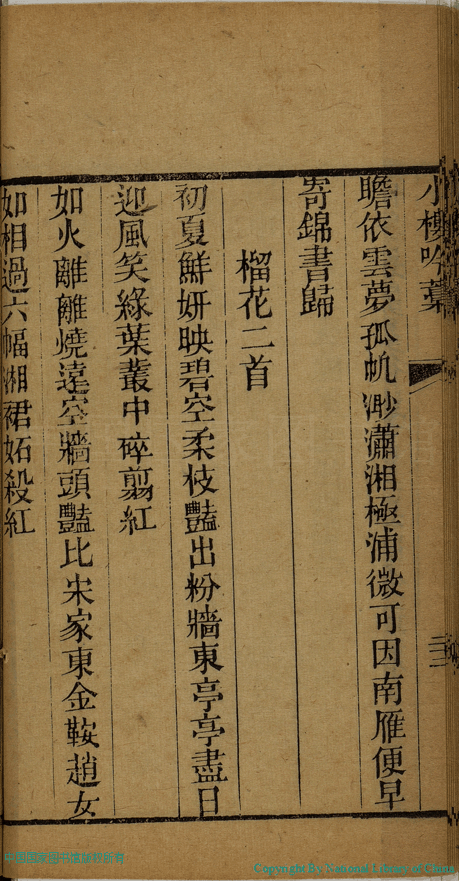 小樓吟藁
瞻依雲夢孤帆渺瀟湘極浦微可因南雁便早
寄錦書歸
榴花二首
初夏鮮妍映碧空柔枝豔出粉牆東亭亭盡日
迎風笑綠葉叢中碎翦紅
如火離離燒遠空牆頭豔比宋家東金鞍趙女
如相過六幅湘裙妬殺紅
Copyright By National Library of China